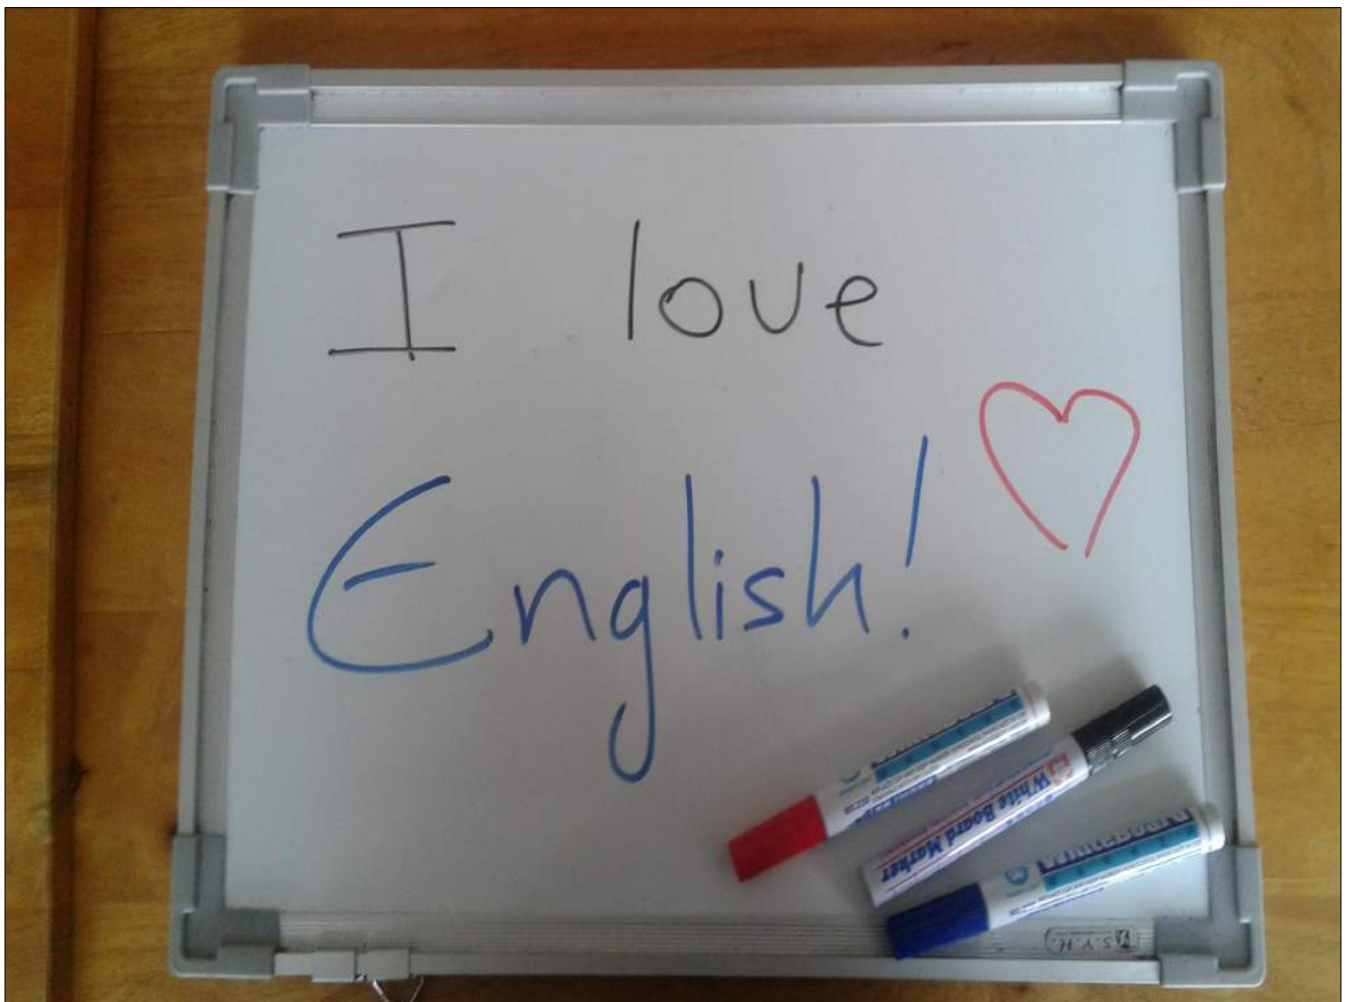 I love
English!
White Board Marker
S.Y.H.